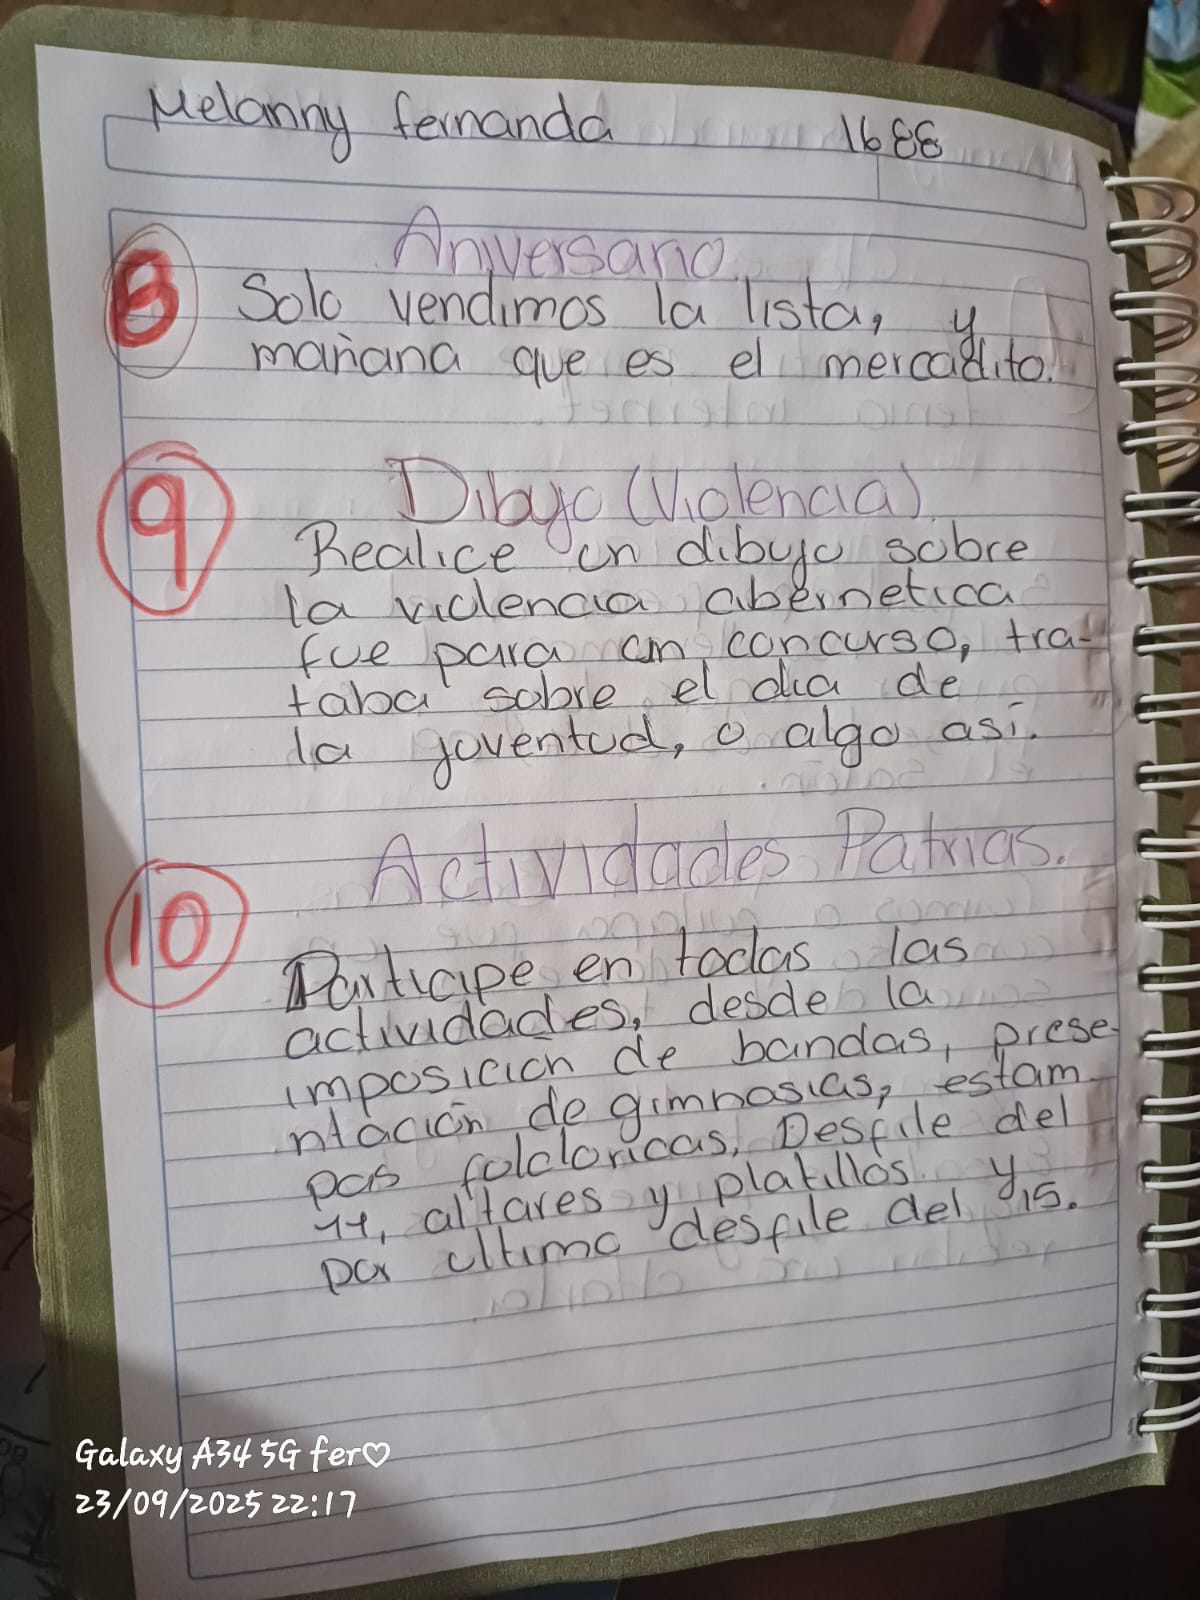 Melanny fernanda 1688
Aniversario.
8 Solo vendimos la lista, y
mañana que es el mercadito.
9 Dibujo (Violencia).
Realice un dibujo sobre
la violencia cibernetica
fue para un concurso, tra-
taba sobre el dia de
la joventud, o algo asi.
Actividades Patrias.
10 Participe en todas las
actividades, desde la
imposicion de bandas, prese-
ntación de gimnasias, estam-
pas folcloricas, Desfile del
11, altares y platillos y
por ultimo desfile del 15.
Galaxy A34 5G fer♡
23/09/2025 22:17